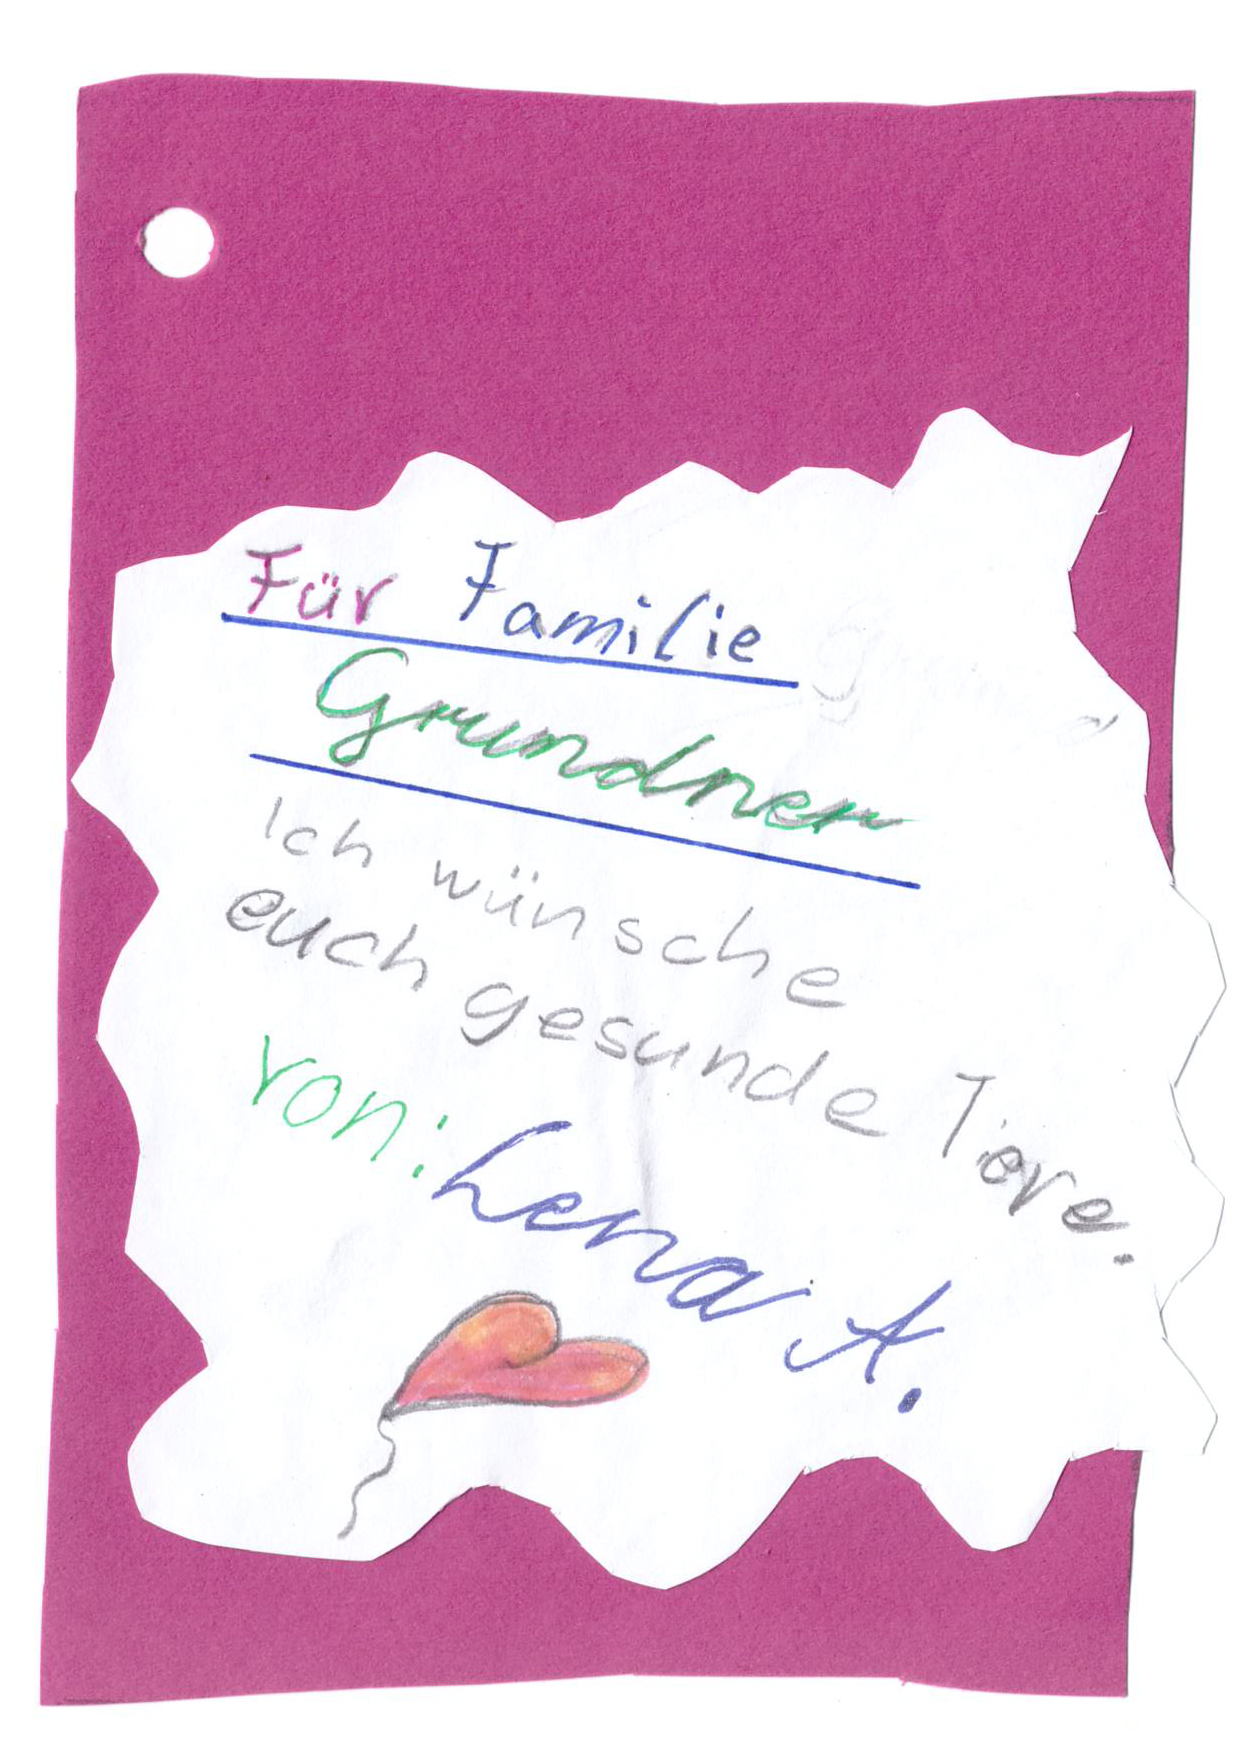 Für Familie
Grundner
Ich wünsche
euch gesunde Tore.
von: Lena A.